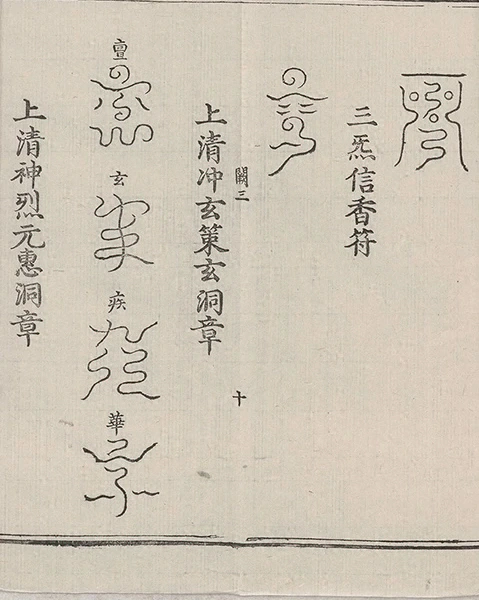 三炁信香符
闕三
十
上清冲玄策玄洞章
亶
玄
疾
華
上清神烈元惠洞章